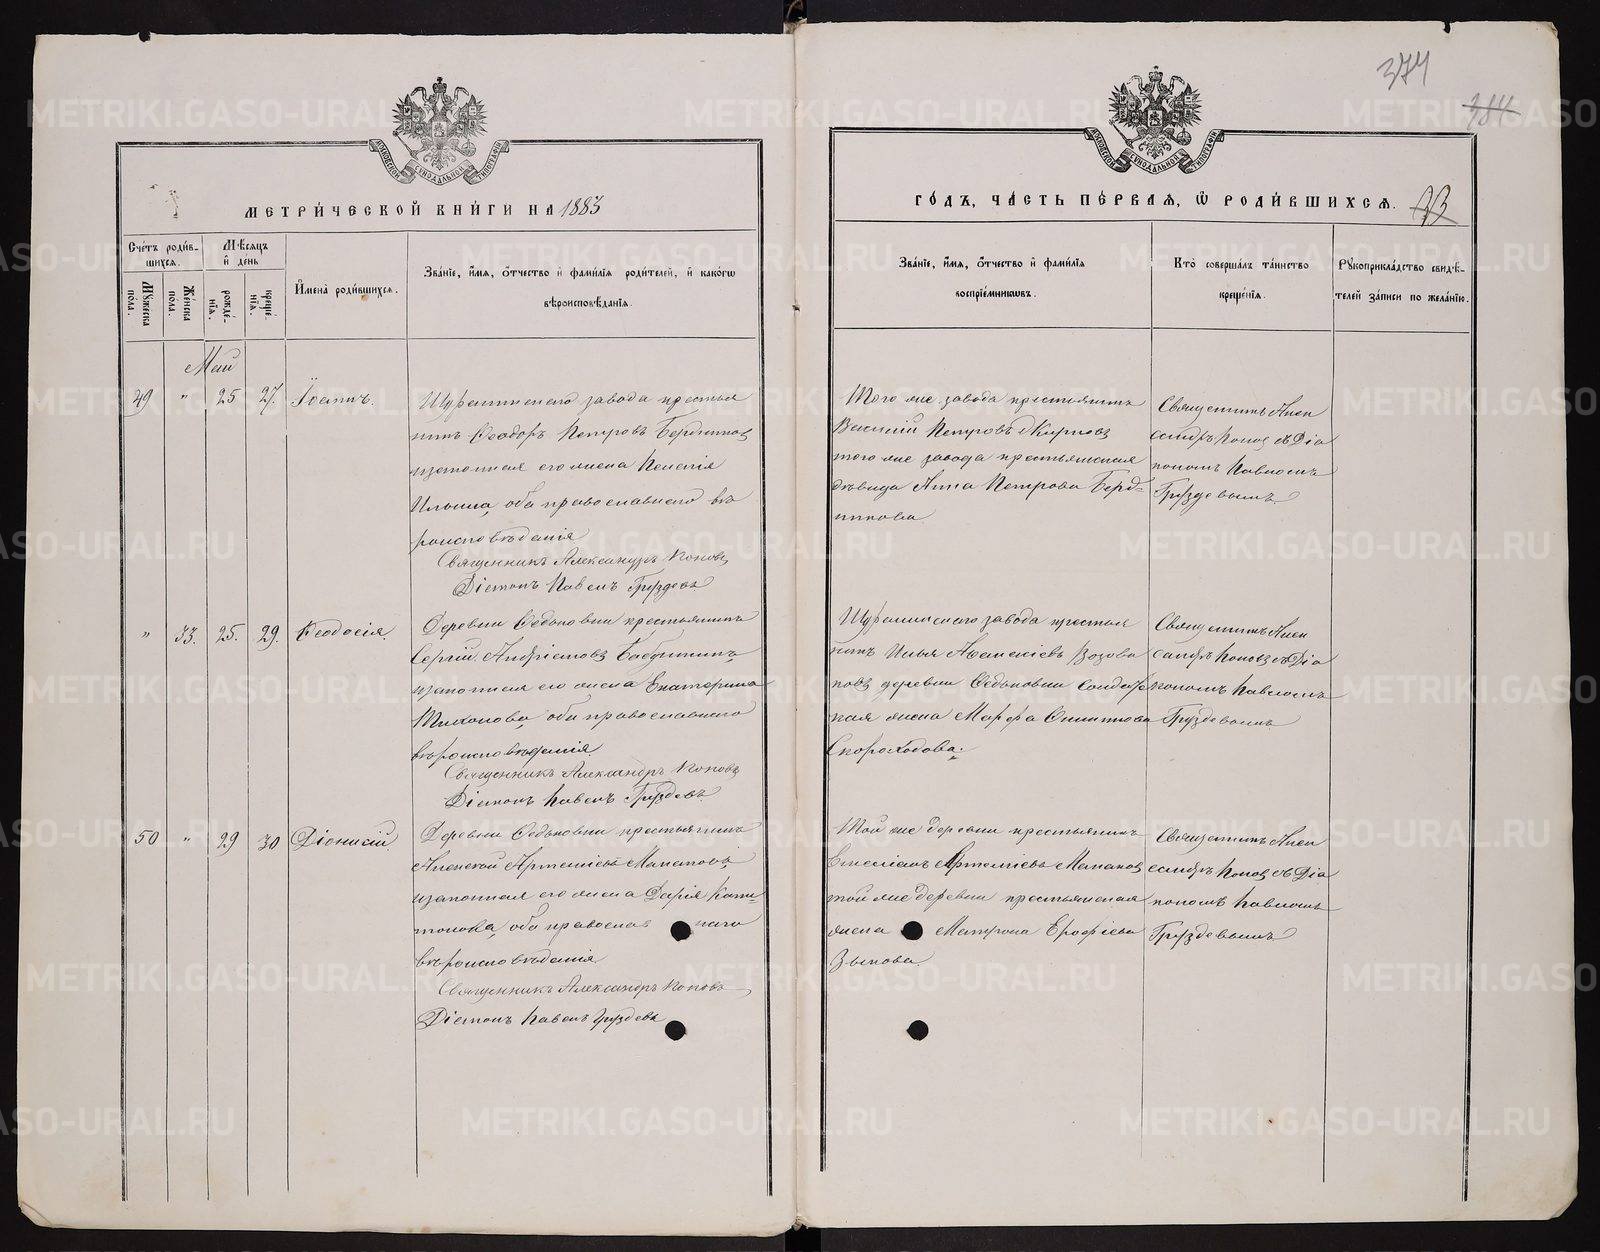 374
384
МЕТРИ́ЧЕСКОЙ КНИ́ГИ НА 1883
ГО́ДЪ, ЧА́СТЬ ПЕ́РВАЯ, Ѿ РОДИ́ВШИХСЯ.
33
Сче́тъ роди́в-
шихся.
Мѣ́сяцъ
и҆ день
Мꙋ́жеска
по́ла.
Же́нска
по́ла.
рожде́-
нїѧ.
креще́-
нїѧ.
И҆мена̀ роди́вшихся.
Зва́нїе, и҆́мѧ, ѻ҆́тчество и҆ фами́лїѧ роди́телей, и҆ како́гѡ
вѣроисповѣ́данїѧ.
Зва́нїе, и҆́мѧ, ѻ҆́тчество и҆ фами́лїѧ
воспрїе́мникѡвъ.
Кто̀ соверша́лъ та́инство
креще́нїѧ.
Рꙋкоприкла́дство свидѣ́-
телей за́писи по жела́нїю.
Май
49 " 25 27. Іоаннъ.
завода крестья
нинъ Ѳеодоръ Петровъ Бердниковъ
и законная его жена Ксенія
Ильина, оба православнаго вѣ
роисповѣданія
Священникъ Александръ Поповъ
Діаконъ Павелъ Груздевъ
Того же завода крестьянинъ
Василій Петровъ
того же завода крестьянская
дѣвица Анна Петрова Берд-
никова
Священникъ Алек
сандръ Поповъ съ Діа
кономъ Павломъ
Груздевымъ
" 33. 25. 29. Ѳеодосія.
Деревни Ѳедьковки крестьянинъ
Сергій Андріановъ
и законная его жена Екатерина
Тихонова, оба православнаго
вѣроисповѣданія
Священникъ Александръ Поповъ
Діаконъ Павелъ Груздевъ
завода крестья
нинъ Илья
деревни Ѳедьковки солдат
ская жена Марфа
Скороходова.
Священникъ Алек
сандръ Поповъ съ Діа
кономъ Павломъ
Груздевымъ
50 " 29 30 Діонисій.
Деревни Ѳедьковки крестьянинъ
Алексѣй Артеміевъ
и законная его жена Дарія Капи-
тонова, оба православнаго
вѣроисповѣданія
Священникъ Александръ Поповъ
Діаконъ Павелъ Груздевъ
Той же деревни крестьянинъ
Артеміевъ
той же деревни крестьянская
жена Матрона Ерофіева
Зыкова.
Священникъ Алек
сандръ Поповъ съ Діа
кономъ Павломъ
Груздевымъ
METRIKI.GASO-URAL.RU